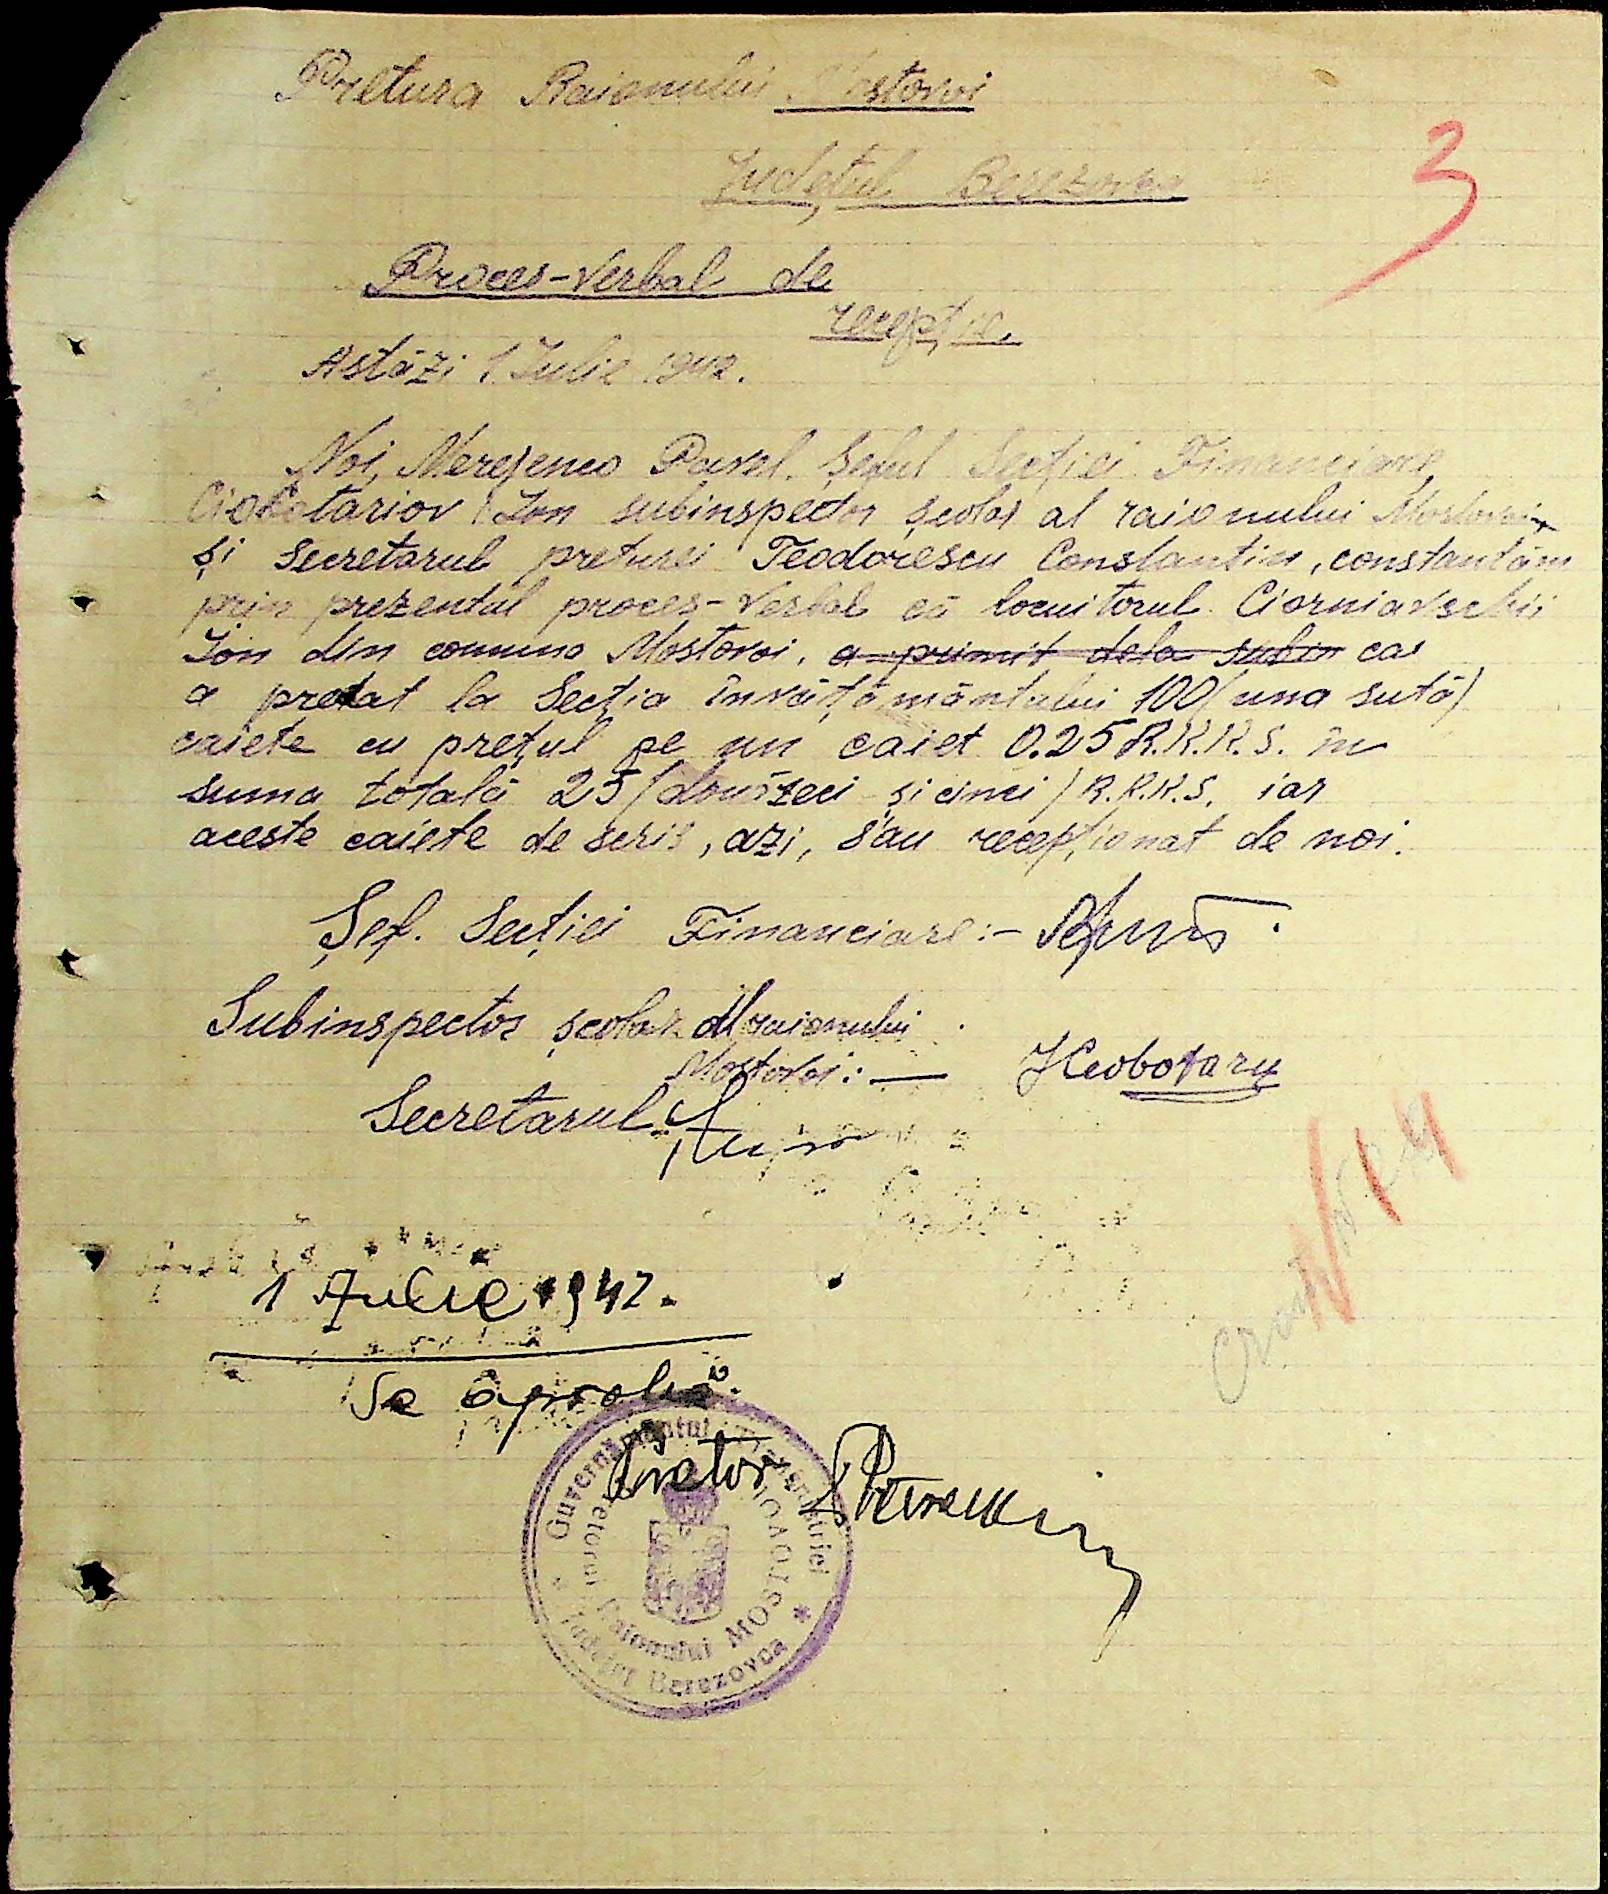 Pretura Raionului Mostovoi
Județul Berezovca
3
Proces-Verbal de
recepție.
Astăzi 1 Iulie 1942.
Noi, Merejenco Pavel. Șeful Secției Financiare,
Ciobotariov Ion subinspector școlar al raionului Mostovoi
și Secretarul preturei Teodorescu Constantin, constantăm
prin prezentul proces-Verbal că locuitorul Ciorniavschii
Ion din comuna Mostovoi, a primit dela subin car
a predat la Secția învățământului 100/una sută/
caiete cu prețul pe un caiet 0.25 R.K.K.S. în
suma totală 25/douăzeci și cinci/R.K.K.S. iar
aceste caiete de scris, azi, s'au recepționat de noi.
Șef. Secției Financiare:-
Subinspector școlar al raionului
Mostovoi: — I Ceobotaru
Secretarul
1 Iulie 1942.
Se aprobă.
Pretor
Guvernământul Transnistriei
Pretorul Raionului MOSTOVOI
Județul Berezovca